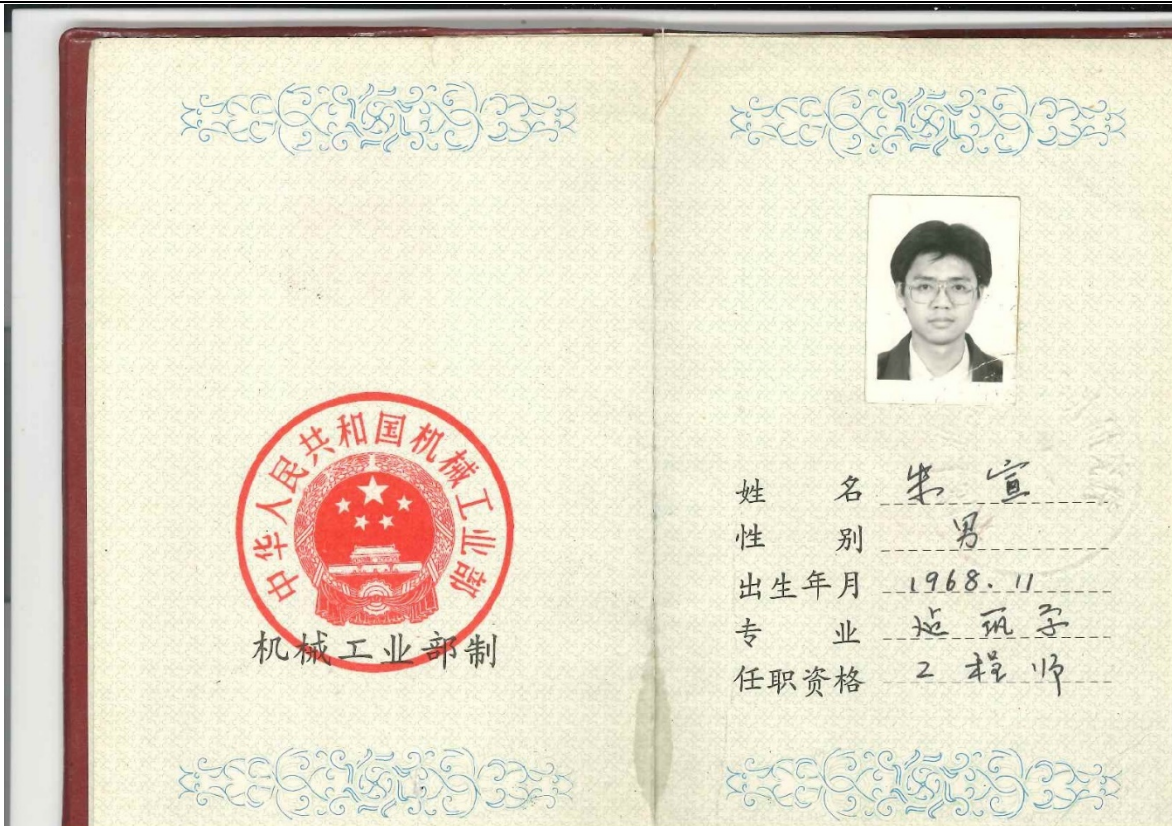 中华人民共和国机械工业部
机械工业部制
姓名 朱宣
性别 男
出生年月 1968.11
专业 建筑学
任职资格 工程师